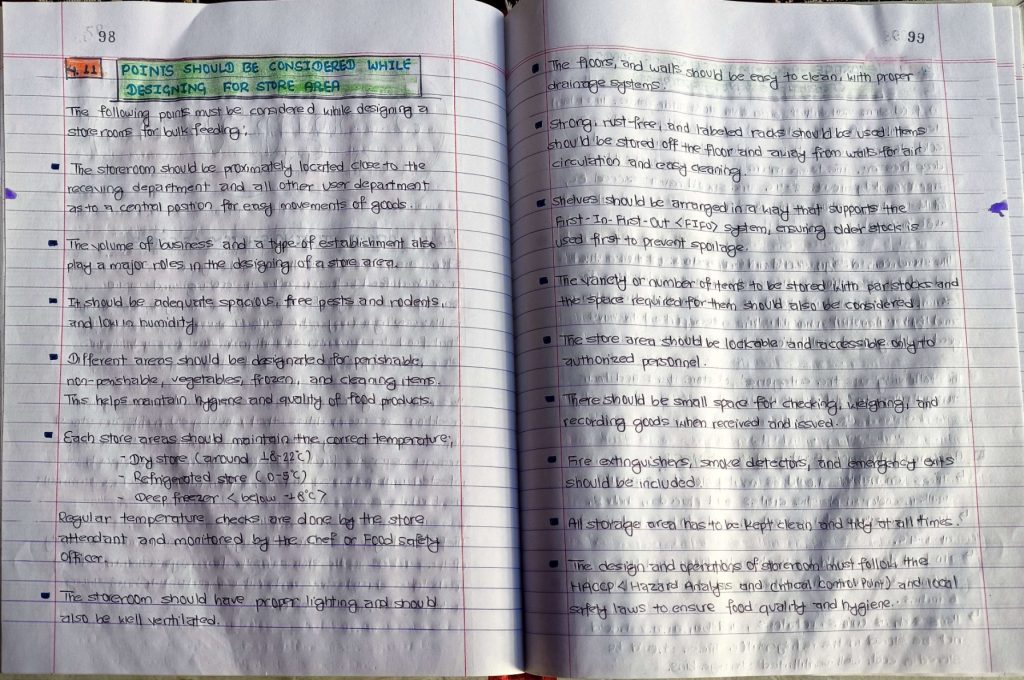 98
4.11 POINTS SHOULD BE CONSIDERED WHILE
DESIGNING FOR STORE AREA
The following points must be considered while designing a
storerooms for bulk feeding:
▪ The storeroom should be proximately located close to the
receiving department and all other user department
as to a central position for easy movements of goods.
▪ The volume of business and a type of establishment also
play a major roles in the designing of a store area.
▪ It should be adequate spacious, free pests and rodents,
and low in humidity.
▪ Different areas should be designated for perishable,
non-perishable, vegetables, frozen, and cleaning items.
This helps maintain hygiene and quality of food products.
▪ Each store areas should maintain the correct temperature;
- Dry store (around 18-22°C)
- Refrigerated store (0-5°C)
- Deep freezer <below -18°C>
Regular temperature checks are done by the store
attendant and monitored by the Chef or Food safety
Officer.
▪ The storeroom should have proper lighting and should
also be well ventilated.
99
▪ The floors, and walls should be easy to clean, with proper
drainage systems.
▪ Strong, rust-free, and labeled racks should be used. Items
should be stored off the floor and away from walls for air
circulation and easy cleaning.
▪ Shelves should be arranged in a way that supports the
First-In-First-Out <FIFO> system, ensuring older stock is
used first to prevent spoilage.
▪ The variety or number of items to be stored with par stocks and
the space required for them should also be considered.
▪ The store area should be lockable and accessible only to
authorized personnel.
▪ There should be small space for checking, weighing, and
recording goods when received and issued.
▪ Fire extinguishers, smoke detectors, and emergency exits
should be included.
▪ All storage area has to be kept clean and tidy at all times.
▪ The design and operations of storeroom must follow the
HACCP <Hazard Analysis and Critical Control Point) and local
safety laws to ensure food quality and hygiene.